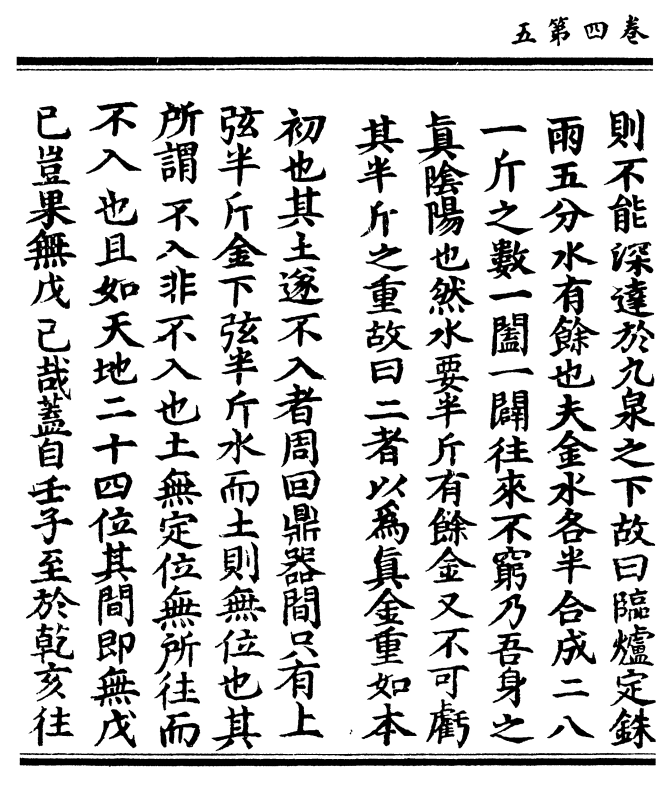 卷四第五
則不能深達於九泉之下故曰臨爐定銖
兩五分水有餘也夫金水各半合成二八
一斤之數一闔一闢往來不窮乃吾身之
眞陰陽也然水要半斤有餘金又不可虧
其半斤之重故曰二者以爲眞金重如本
初也其土遂不入者周回鼎器間只有上
弦半斤金下弦半斤水而土則無位也其
所謂不入非不入也土無定位無所往而
不入也且如天地二十四位其間即無戊
己豈果無戊己哉蓋自壬子至於乾亥往